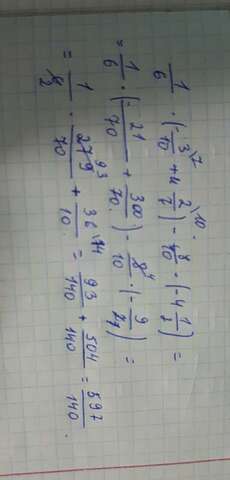 1/6 · (-3/10 \7 + 4 2/7 \10) - 8/10 · (-4 1/2) =
= 1/6 · (-21/70 + 300/70) - 8 4/10 · (-9/2) =
= 1/2 · 279 93/70 + 36 \14/10 = 93/140 + 504/140 = 597/140.